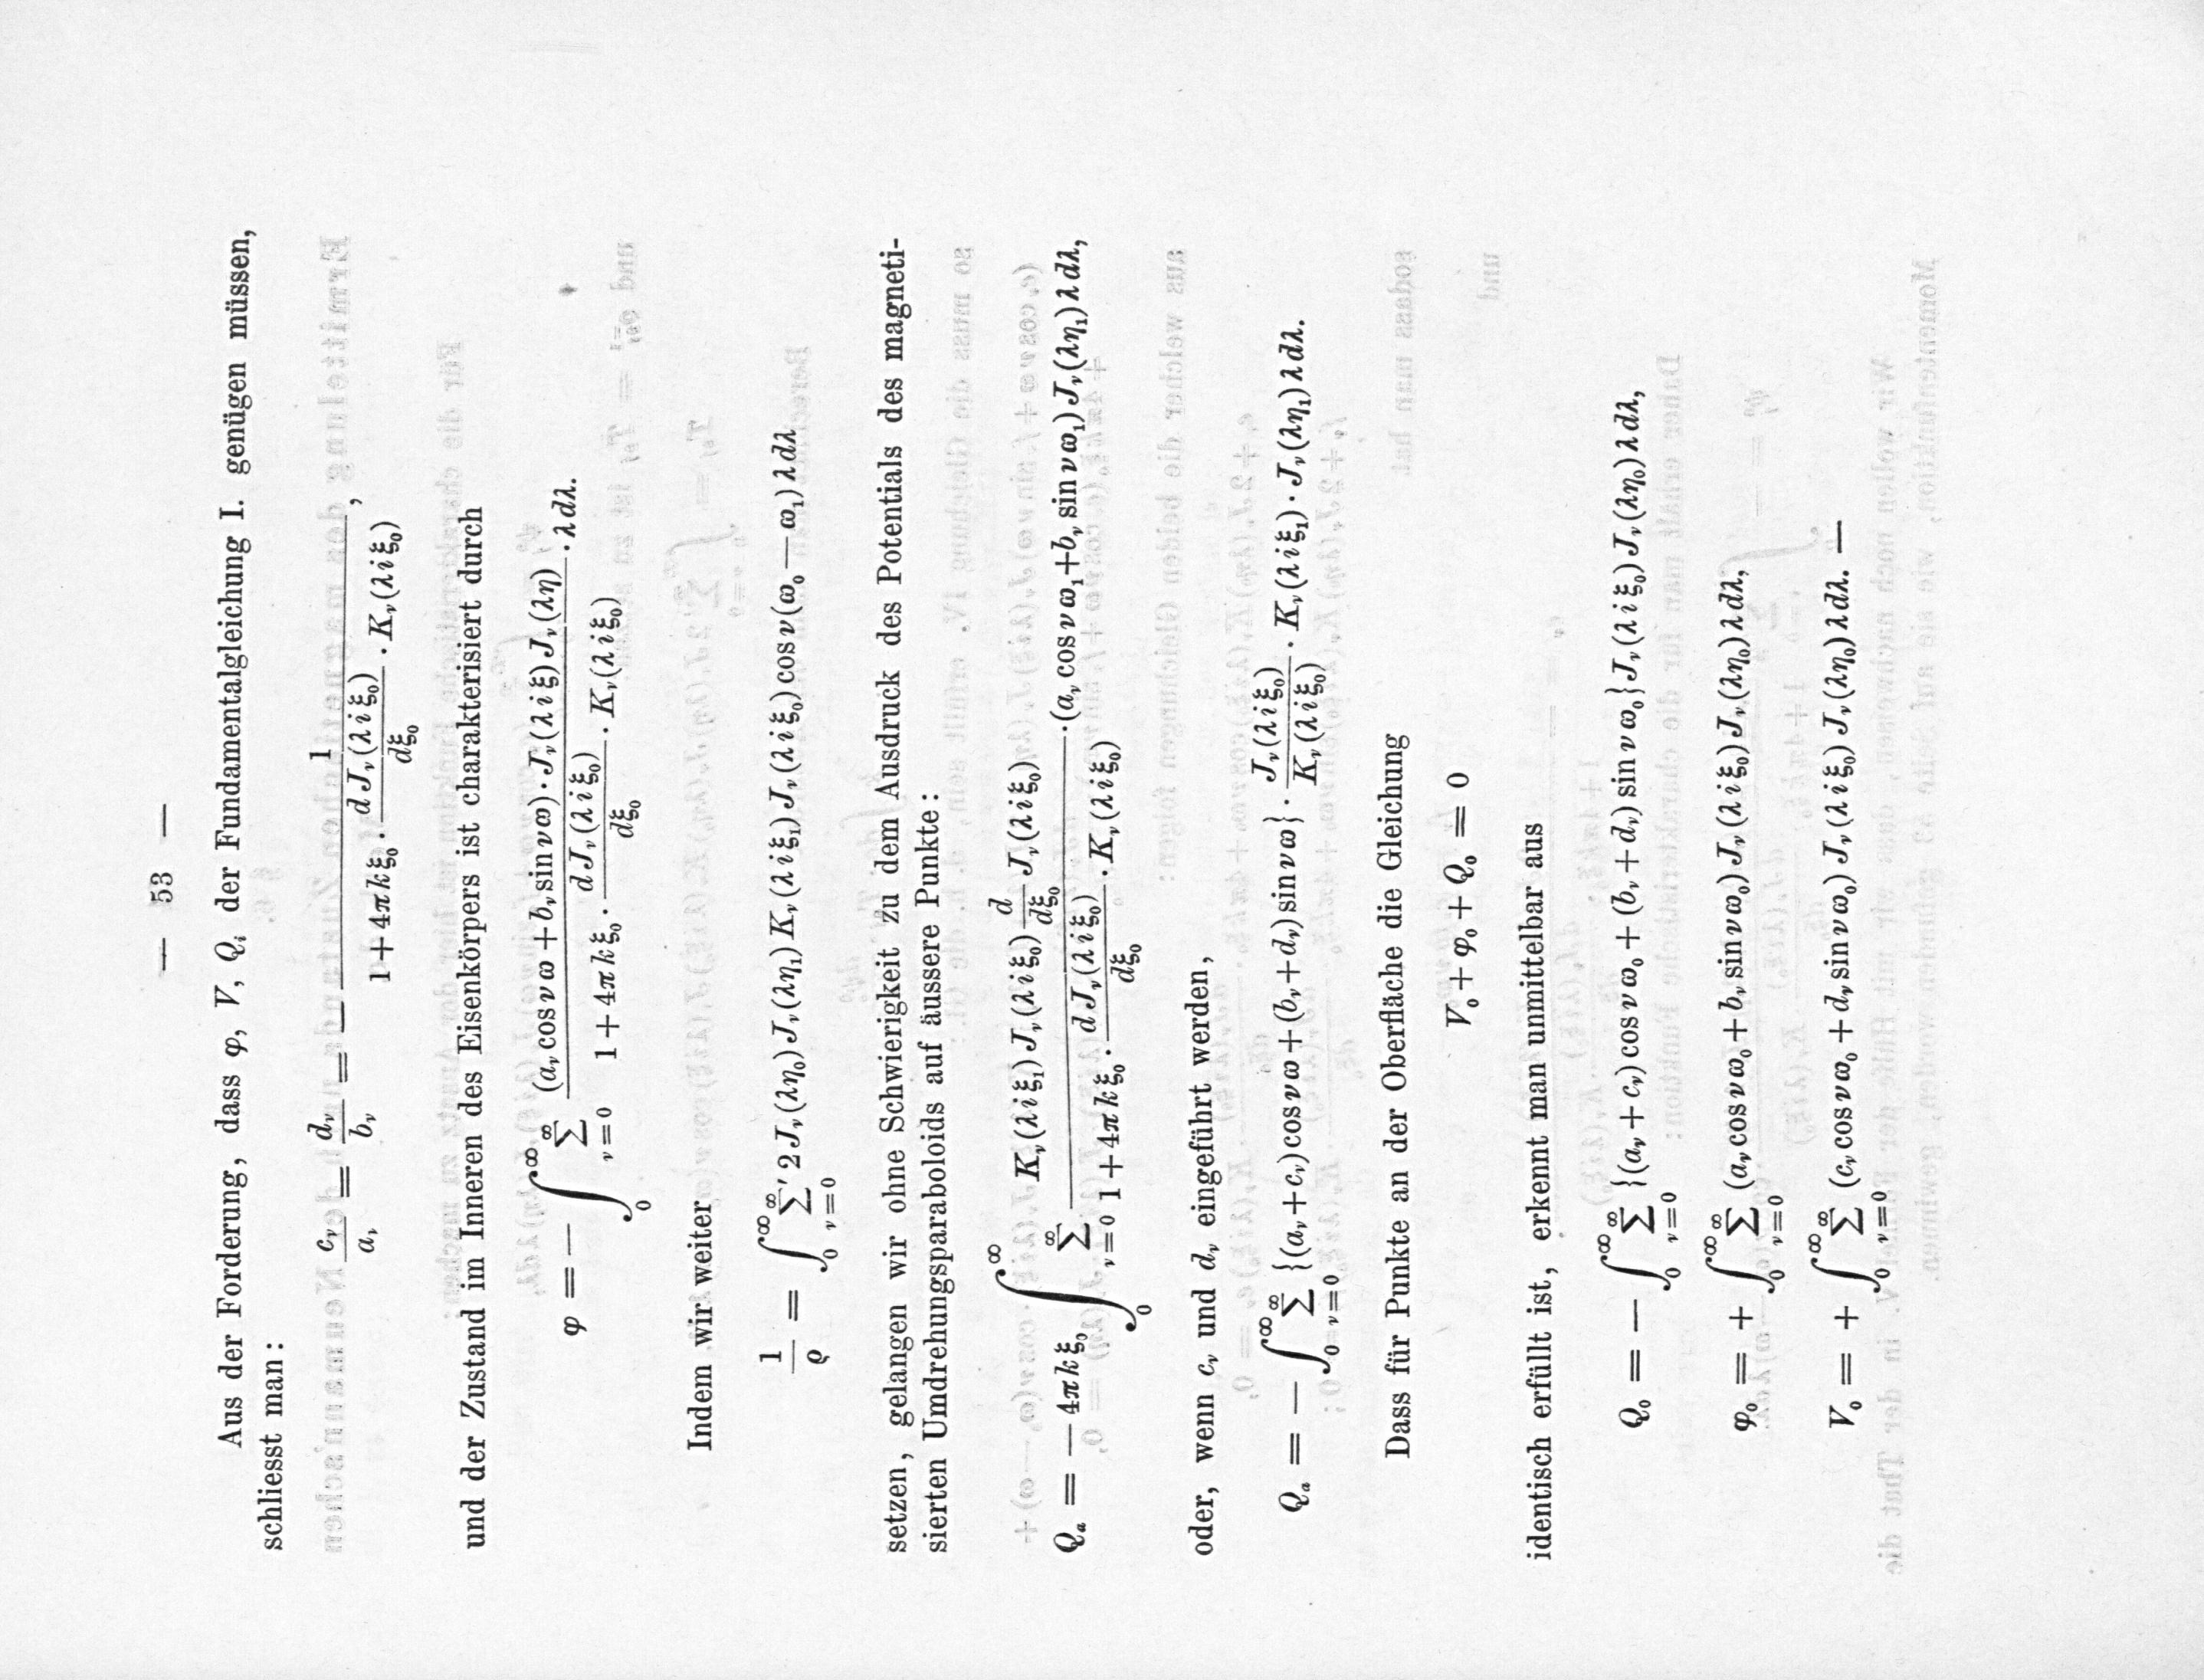 — 53 —
Aus der Forderung, dass φ, V, Qᵢ der Fundamentalgleichung I. genügen müssen,
schliesst man:
$\frac{c_\nu}{a_\nu} = \frac{d_\nu}{b_\nu} = - \frac{1}{1 + 4\pi k \xi_0 \cdot \frac{d J_\nu(\lambda i \xi_0)}{d\xi_0} \cdot K_\nu(\lambda i \xi_0)},$
und der Zustand im Inneren des Eisenkörpers ist charakterisiert durch
$\varphi = - \int_0^\infty \sum_{\nu=0}^\infty \frac{(a_\nu \cos \nu\omega + b_\nu \sin \nu\omega) \cdot J_\nu(\lambda i \xi) J_\nu(\lambda\eta)}{1 + 4\pi k \xi_0 \cdot \frac{d J_\nu(\lambda i \xi_0)}{d\xi_0} \cdot K_\nu(\lambda i \xi_0)} \cdot \lambda d\lambda.$
Indem wir weiter
$\frac{1}{\varrho} = \int_0^\infty \sum_{\nu=0}^{\infty}{}' 2 J_\nu(\lambda\eta_0) J_\nu(\lambda\eta_1) K_\nu(\lambda i \xi_1) J_\nu(\lambda i \xi_0) \cos \nu(\omega_0 - \omega_1) \lambda d\lambda$
setzen, gelangen wir ohne Schwierigkeit zu dem Ausdruck des Potentials des magneti-
sierten Umdrehungsparaboloids auf äussere Punkte:
$Q_a = - 4\pi k \xi_0 \int_0^\infty \sum_{\nu=0}^\infty \frac{K_\nu(\lambda i \xi_1) J_\nu(\lambda i \xi_0) \frac{d}{d\xi_0} J_\nu(\lambda i \xi_0)}{1 + 4\pi k \xi_0 \cdot \frac{d J_\nu(\lambda i \xi_0)}{d\xi_0} \cdot K_\nu(\lambda i \xi_0)} \cdot (a_\nu \cos \nu\omega_1 + b_\nu \sin \nu\omega_1) J_\nu(\lambda\eta_1) \lambda d\lambda,$
oder, wenn $c_\nu$ und $d_\nu$ eingeführt werden,
$Q_a = - \int_0^\infty \sum_{\nu=0}^\infty \{(a_\nu + c_\nu) \cos \nu\omega + (b_\nu + d_\nu) \sin \nu\omega\} \cdot \frac{J_\nu(\lambda i \xi_0)}{K_\nu(\lambda i \xi_0)} \cdot K_\nu(\lambda i \xi_1) \cdot J_\nu(\lambda\eta_1) \lambda d\lambda.$
Dass für Punkte an der Oberfläche die Gleichung
$V_0 + \varphi_0 + Q_0 = 0$
identisch erfüllt ist, erkennt man unmittelbar aus
$Q_0 = - \int_0^\infty \sum_{\nu=0}^\infty \{(a_\nu + c_\nu) \cos \nu\omega_0 + (b_\nu + d_\nu) \sin \nu\omega_0\} J_\nu(\lambda i \xi_0) J_\nu(\lambda\eta_0) \lambda d\lambda,$
$\varphi_0 = + \int_0^\infty \sum_{\nu=0}^\infty (a_\nu \cos \nu\omega_0 + b_\nu \sin \nu\omega_0) J_\nu(\lambda i \xi_0) J_\nu(\lambda\eta_0) \lambda d\lambda,$
$V_0 = + \int_0^\infty \sum_{\nu=0}^\infty (c_\nu \cos \nu\omega_0 + d_\nu \sin \nu\omega_0) J_\nu(\lambda i \xi_0) J_\nu(\lambda\eta_0) \lambda d\lambda. —$